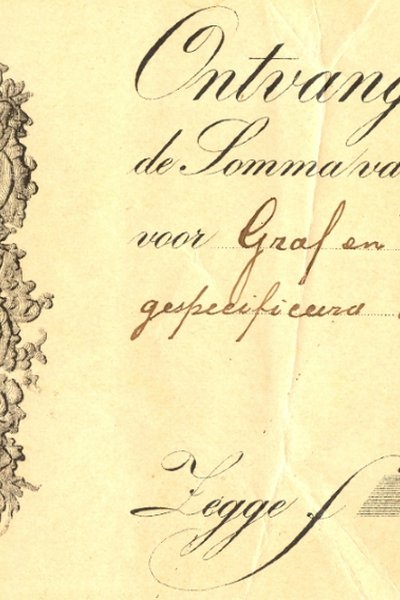 Ontvang
de Somma va
voor Graf en
gespecificeerd
Zegge f